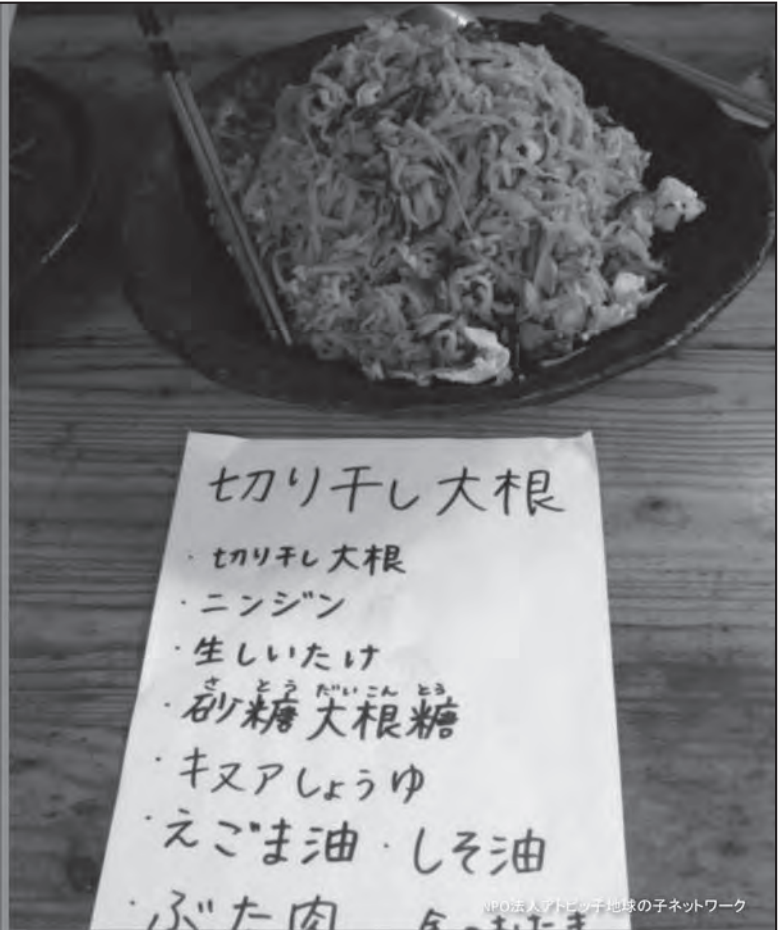 切り干し大根
・切り干し大根
・ニンジン
・生しいたけ
さとうだいこんとう
・砂糖大根糖
・キヌアしょうゆ
・えごま油・しそ油
・ぶた肉
NPO法人アトピッ子地球の子ネットワーク